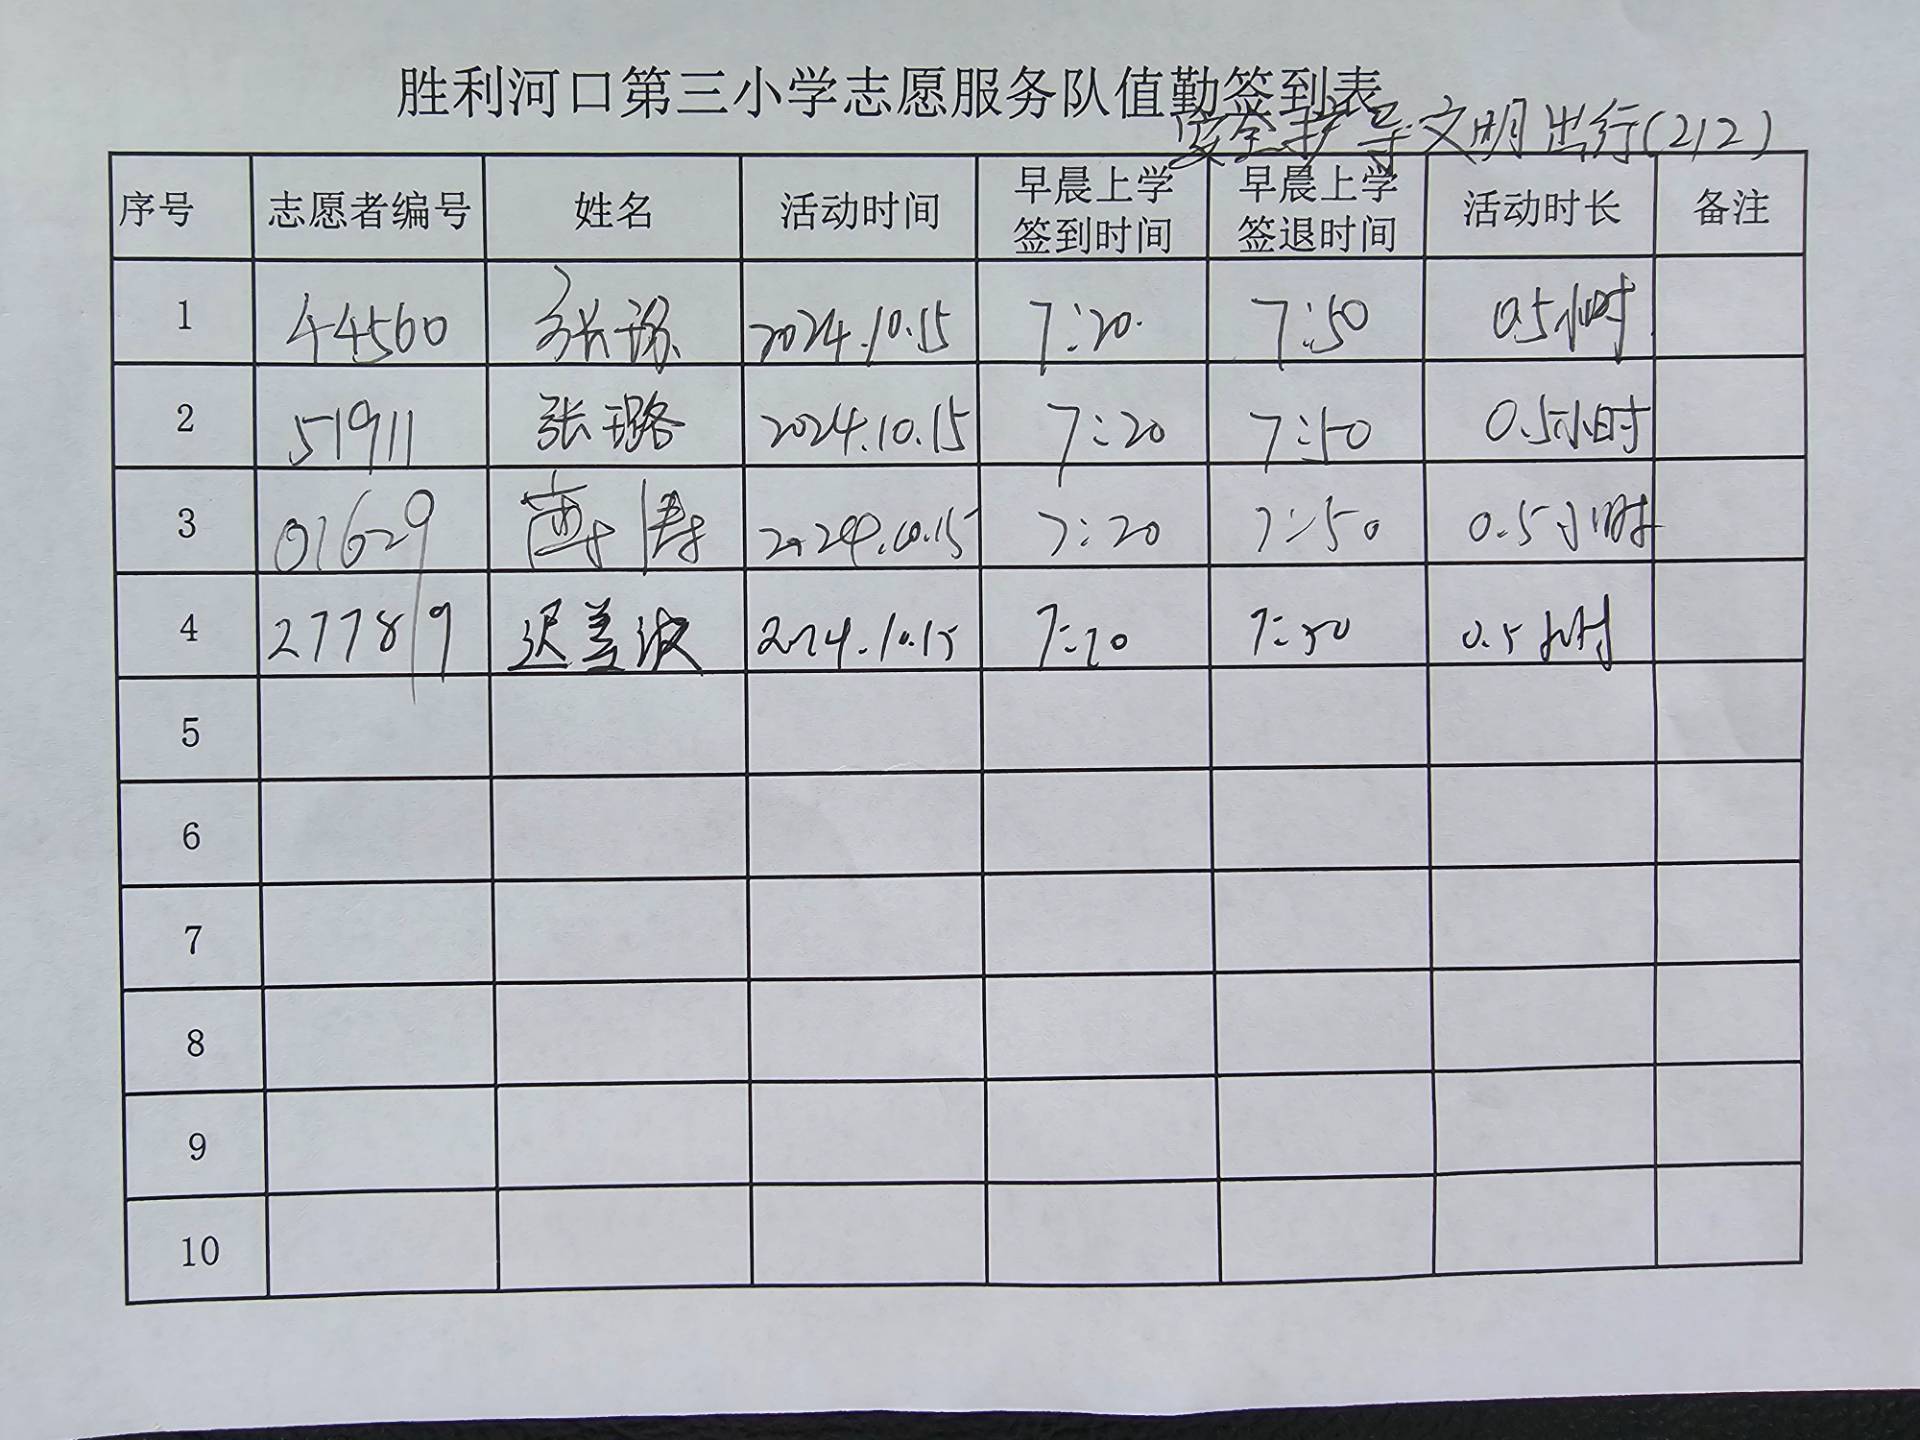 胜利河口第三小学志愿服务队值勤签到表
安全护导文明出行(212)
序号 志愿者编号 姓名 活动时间 早晨上学签到时间 早晨上学签退时间 活动时长 备注
1 44560 张 2024.10.15 7:20 7:50 0.5小时
2 51911 张璐 2024.10.15 7:20 7:50 0.5小时
3 01629 涛 2024.10.15 7:20 7:50 0.5小时
4 27789 迟美波 2024.10.15 7:20 7:50 0.5小时
5
6
7
8
9
10